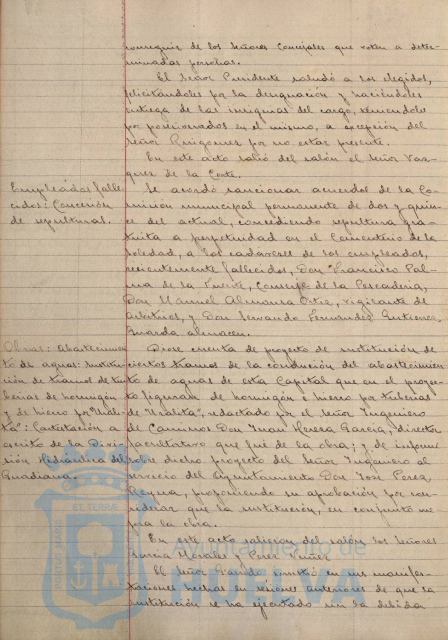 conseguir de los Señores Concejales que voten a deter-
minadas personas.
El Señor Presidente saludó a los elegidos,
felicitándoles por la designación y haciéndoles
entrega de las insignias del cargo, teniéndoles
por posesionados en el mismo, a excepción del
Señor Quigones por no estar presente.
En este acto salió del salón el Señor Vaz-
quez de la Corte.
Empleados falle-
cidos: Concesión
de sepulturas.
Se acordó sancionar acuerdos de la Co-
misión municipal permanente de dos y quin-
ce del actual, concediendo sepultura gra-
tuita a perpetuidad en el Cementerio de la
Soledad, a los cadáveres de los empleados,
recientemente fallecidos, Don Francisco Pal-
ma de la Fuente, Conserje de la Pescadería,
Don Manuel Almansa Ortiz, vigilante de
arbitrios, y Don Servando Fernandez Gutierrez,
Guarda almacen.
Obras: abastecimien-
to de aguas: Sustitu-
ción de tramos de tu-
berías de hormigón
y de hierro por "Urali-
ta": Contestación a
escrito de la Divi-
sión Hidráulica del
Guadiana.
Diose cuenta de proyecto de sustitución de
ciertos tramos de la conducción del abastecimien-
to de aguas de esta Capital que en el proyec-
to figuran de hormigón e hierro por tuberías
de "Uralita", redactado por el Señor Ingeniero
de Caminos Don Juan García, director
facultativo que fué de la obra; y de informe
sobre dicho proyecto del Señor Ingeniero al
servicio del Ayuntamiento Don José Perez
Reyna, proponiendo su aprobación por con-
siderar que la sustitución, en conjunto me-
jora la obra.
En este acto salieron del salón los Señores
Morales y Perez Nuñez.
El Señor Garrido insistió en sus manifes-
taciones hechas en sesiones anteriores de que la
sustitución se ha ejecutado sin la debida
Ayuntamiento de
HUELVA